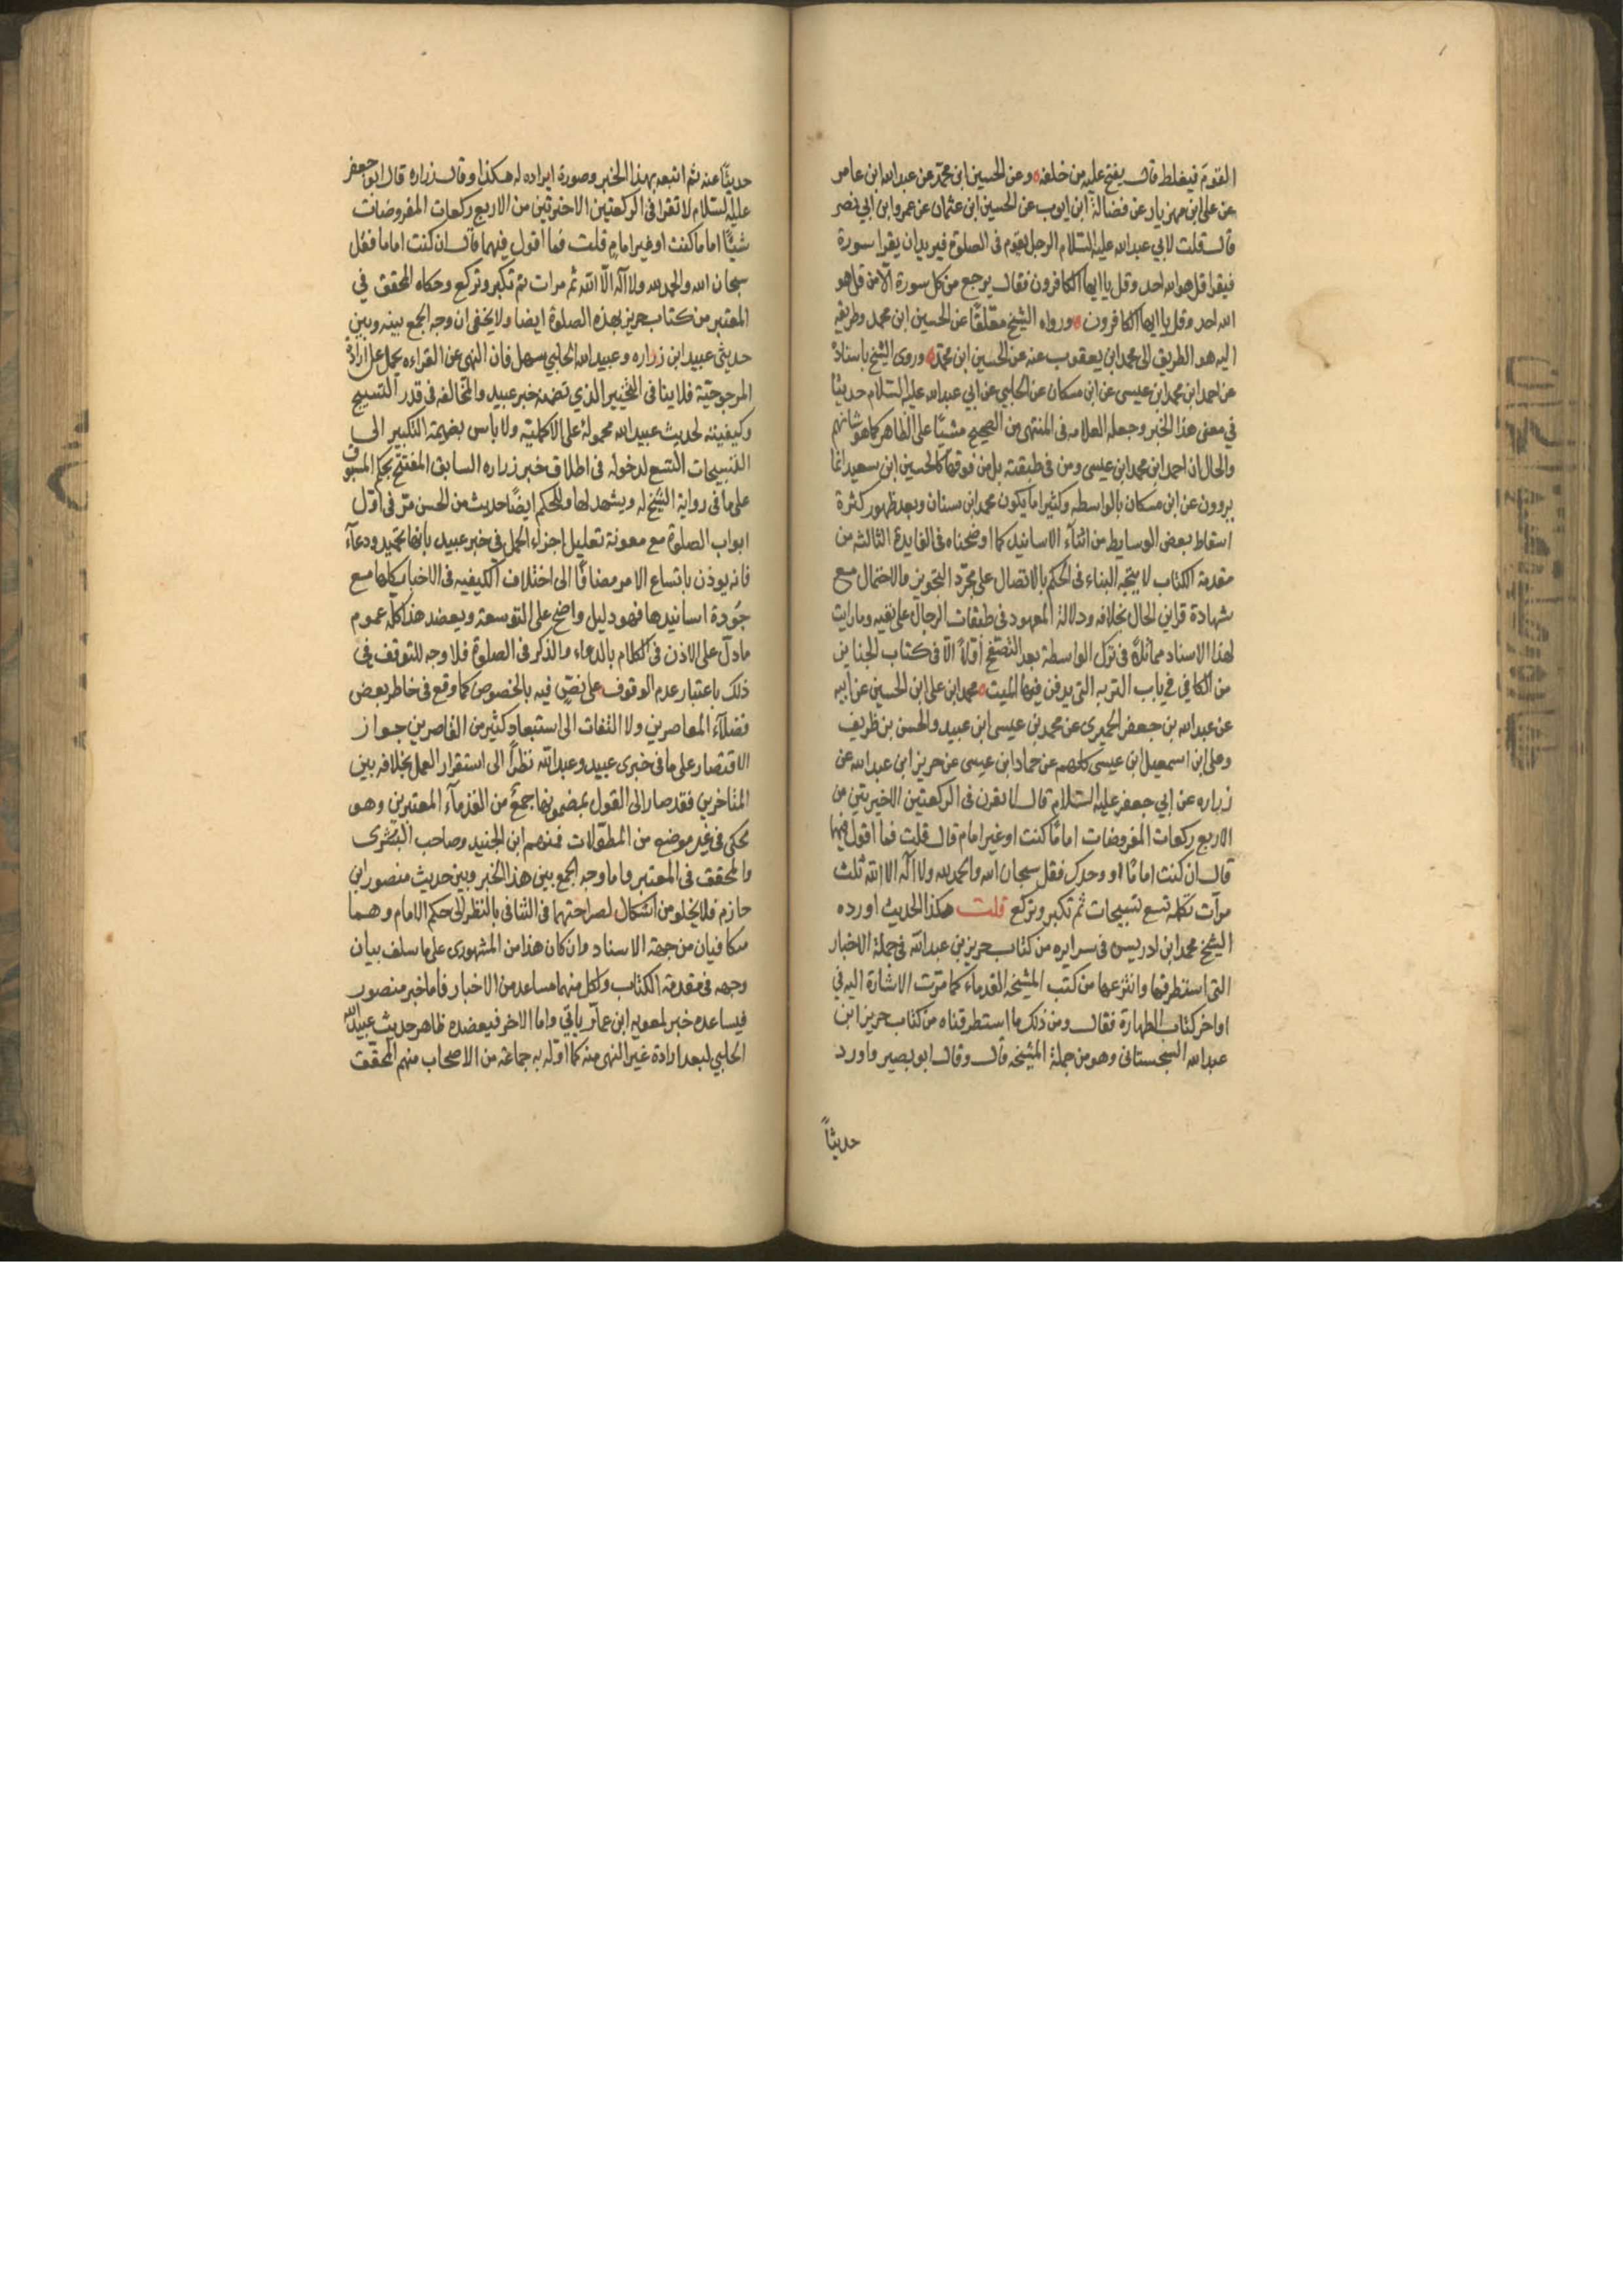 القوم فيغلط قال يفتح عليه من خلفه وعن الحسين ابن محمد عن عبد الله ابن عامر
عن علي ابن مهزيار عن فضالة ابن ايوب عن الحسين ابن عثمان عن عمرو ابن ابي نصر
قال قلت لابي عبد الله عليه السلام الرجل يقوم في الصلوة فيريد ان يقرا سورة
فيقرا قل هو الله احد وقل يا ايها الكافرون فقال يرجع من كل سورة الا من قل هو
الله احد وقل يا ايها الكافرون ورواه الشيخ معلقا عن الحسين ابن محمد وطريقه
اليه هو الطريق الى محمد ابن يعقوب عنه عن الحسين ابن محمد وروى الشيخ باسناده
عن احمد ابن محمد ابن عيسى عن ابن مسكان عن الحلبي عن ابي عبد الله عليه السلام حديثا
في معنى هذا الخبر وجعله العلامه في المنتهى من الصحيح مشيا على الظاهر كما هو شانهم
والحال ان احمد ابن محمد ابن عيسى ومن في طبقته بل من فوقها كالحسين ابن سعيد انما
يروون عن ابن مسكان بالواسطه وكثيرا ما يكون محمد ابن سنان وبعد ظهور كثرة
اسقاط بعض الوسايط من اثناء الاسانيد كما اوضحناه في الفايدة الثالثه من
مقدمة الكتاب لا يتجه البناء في الحكم بالاتصال على مجرد التجويز والاحتمال مع
شهادة قراين الحال بخلافه ودلالة المعهود في طبقات الرجال على نفيه وما رايت
لهذا الاسناد مماثلا في ترك الواسطة بعد التصفح الا في كتاب الجنايز
من الكافي في باب التربه التي يدفن فيها الميت محمد ابن علي ابن الحسين عن ابيه
عن عبد الله بن جعفر الحميري عن محمد بن عيسى ابن عبيد والحسن بن ظريف
وعلي ابن اسمعيل ابن عيسى كلهم عن حماد ابن عيسى عن حريز ابن عبد الله عن
زراره عن ابي جعفر عليه السلام قال لا تقرن في الركعتين الاخيرتين من
الاربع ركعات المفروضات اماما كنت او غير امام قال قلت فما اقول فيها
قال ان كنت اماما او وحدك فقل سبحان الله والحمد لله ولا اله الا الله ثلث
مرات تكمله تسع تسبيحات ثم تكبر وتركع قلت هكذا الحديث اورده
الشيخ محمد ابن ادريس في سرايره من كتاب حريز بن عبد الله في جملة الاخبار
التي استطرفها وانتزعها من كتب المشيخه القدماء كما مرت الاشارة اليه في
اواخر كتاب الطهارة فقال ومن ذلك ما استطرفناه من كتاب حريز ابن
عبد الله السجستاني وهو من جملة المشيخه قال وقال ابو بصير واورد
حديثا
حديثا عنه ثم اتبعه بهذا الخبر وصورة ايراده له هكذا وقال زراره قال ابو جعفر
عليه السلام لا تقرا في الركعتين الاخيرتين من الاربع ركعات المفروضات
شيئا اماما كنت او غير امام قلت فما اقول فيهما قال ان كنت اماما فقل
سبحان الله والحمد لله ولا اله الا الله ثلث مرات ثم تكبر وتركع وحكاه المحقق في
المعتبر من كتاب حريز بهذه الصلوة ايضا ولا يخفى ان وجه الجمع بينه وبين
حديثي عبيد ابن زراره وعبيد الله الحلبي سهل فان النهى عن القراءه يحمل على ارادة
المرجوحية فلا ينافي التخيير الذي تضمنه خبر عبيد والمخالفه في قدر التسبيح
وكيفيته لحديث عبيد الله محمولة على الاكملية ولا باس بضميمة التكبير الى
التسبيحات التسع لدخوله في اطلاق خبر زراره السابق المفتتح بحكم المسبوق
على ما في رواية الشيخ له ويشهد لها وللحكم ايضا حديث من الحسن مر في اول
ابواب الصلوة مع معونة تعليل اجزاء الحمد في خبر عبيد بانها تحميد ودعاء
فانه يوذن باتساع الامر مضافا الى اختلاف الكيفيه في الاخبار كلها مع
جودة اسانيدها فهو دليل واضح على التوسعة ويعضد هذا كله عموم
ما دل على الاذن في الكلام بالدعاء والذكر في الصلوة فلا وجه للتوقف في
ذلك باعتبار عدم الوقوف على نص فيه بالخصوص كما وقع في خاطر بعض
فضلاء المعاصرين ولا التفات الى استبعاد كثير من القاصرين جواز
الاقتصار على ما في خبري عبيد وعبد الله نظرا الى استقرار العمل بخلافه بين
المتاخرين فقد صار الى القول بمضمونها جمع من القدماء المعتبرين وهو
محكى في غير موضع من المطولات فمنهم ابن الجنيد وصاحب البشرى
والمحقق في المعتبر واما وجه الجمع بين هذا الخبر وبين حديث منصور ابن
حازم فلا يخلو من اشكال لصراحتهما في التنافي بالنظر الى حكم الامام وهما
متكافيان من جهة الاسناد وان كان هذا من المشهوري على ما سلف بيان
وجهه في مقدمة الكتاب ولكل منهما مساعد من الاخبار فاما خبر منصور
فيساعده خبر لمعويه ابن عمار ياتي واما الاخر فيعضده ظاهر حديث عبيد الله
الحلبي لبعد ارادة غير النهى منه كما اوله به جماعة من الاصحاب منهم المحقق